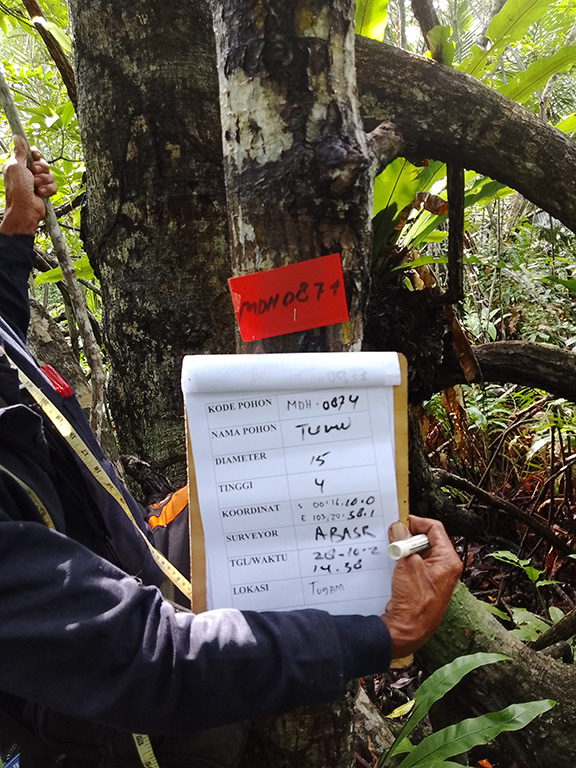 MDH0874
KODE POHON MDH-0874
NAMA POHON TUMU
DIAMETER 15
TINGGI 4
KOORDINAT S 00.16.10.0
E 103.20.58.1
SURVEYOR ABASR
TGL/WAKTU 28-10-2
14.38
LOKASI